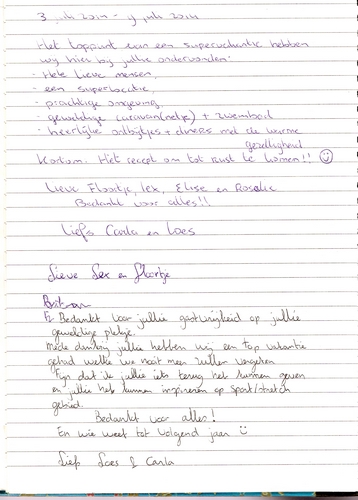 3 juli 2014 - 9 juli 2014
Het toppunt van een supervakantie hebben
wij hier bij jullie ondervonden:
- Hele lieve mensen,
- een superlocatie,
- prachtige omgeving
- geweldige caravan(netje) + zwembad
- heerlijke ontbijtjes + diners met de warme
gezelligheid
Kortom: Hét recept om tot rust te komen!! ☺
Lieve Floortje, Lex, Elise en Rosalie
Bedankt voor alles!!!
Liefs Carla en Loes
Lieve Lex en Floortje
Bedankt voor jullie gastvrijheid op jullie
geweldige plekje.
Mede dankzij jullie hebben wij een top vakantie
gehad welke we nooit meer zullen vergeten
Fijn dat ik jullie iets terug heb kunnen geven
en jullie heb kunnen inspireren op sport/stretch
gebied.
Bedankt voor alles!
En wie weet tot volgend jaar ☺
Liefs Loes & Carla